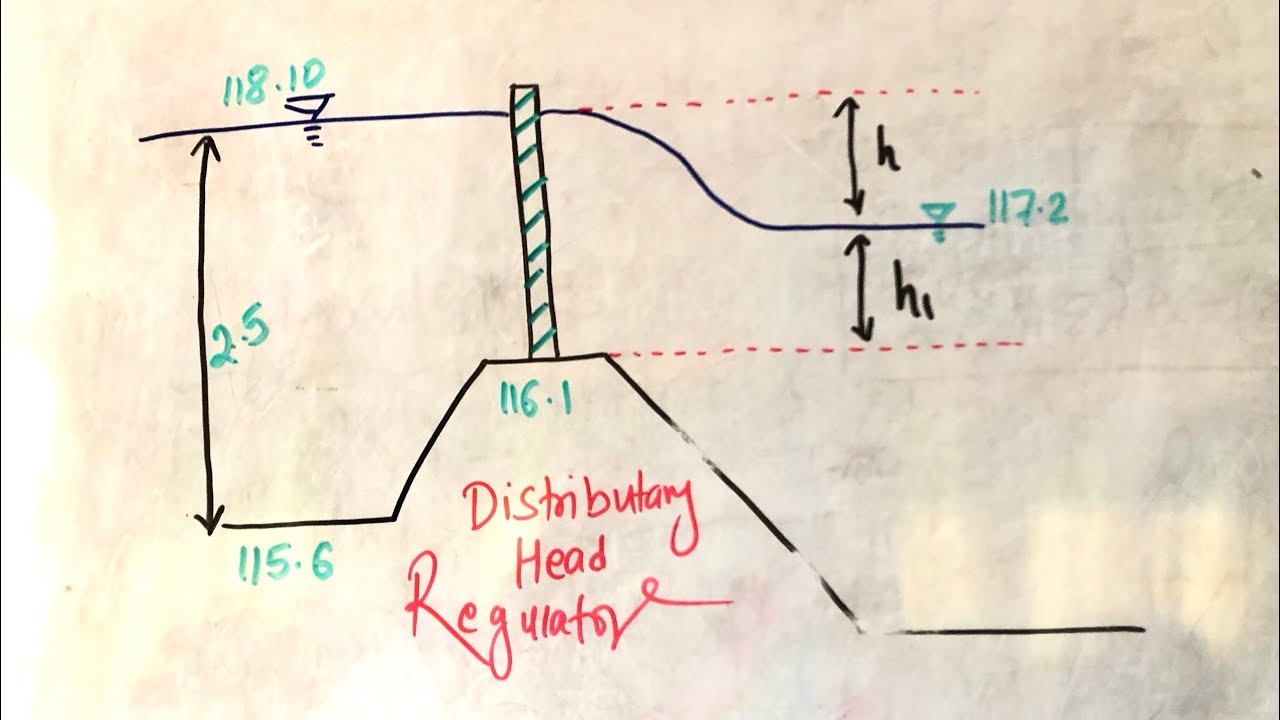 118.10
h
117.2
2.5
h₁
116.1
115.6
Distributary
Head
Regulator